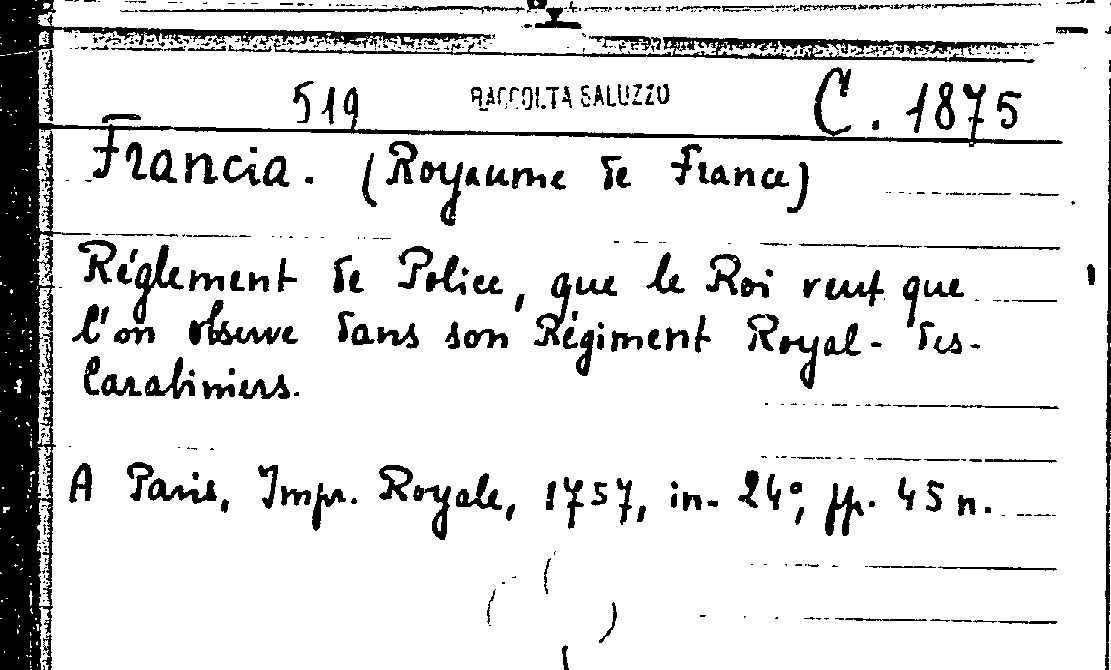 519 RACCOLTA SALUZZO C. 1875
Francia. (Royaume de France)
Réglement de Police, que le Roi veut que
l'on observe dans son Régiment Royal-des-
Carabiniers.
A Paris, Impr. Royale, 1757, in-24°, pp. 45 n.